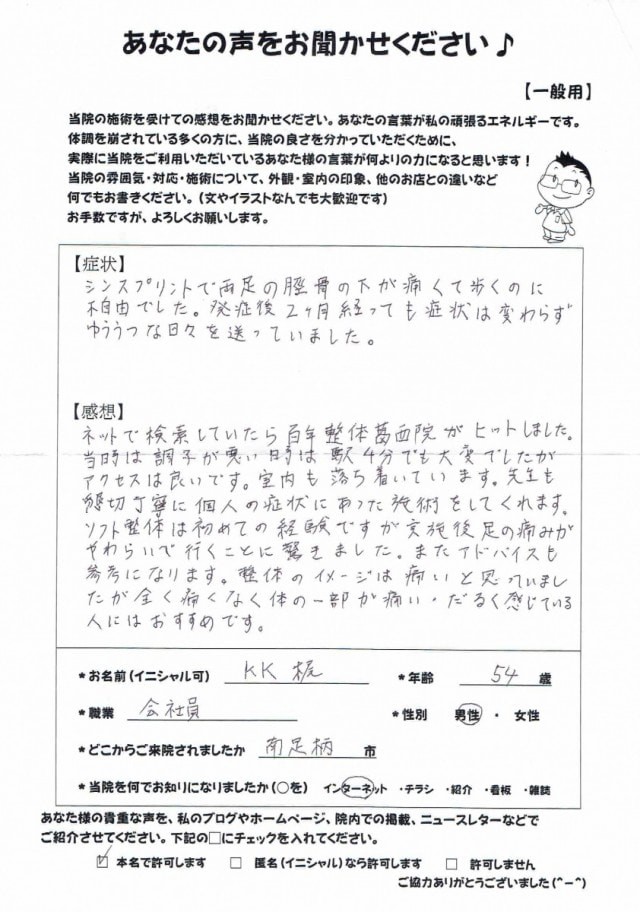 あなたの声をお聞かせください♪
【一般用】
当院の施術を受けての感想をお聞かせください。あなたの言葉が私の頑張るエネルギーです。
体調を崩されている多くの方に、当院の良さを分かっていただくために、
実際に当院をご利用いただいているあなた様の言葉が何よりの力になると思います！
当院の雰囲気・対応・施術について、外観・室内の印象、他のお店との違いなど
何でもお書きください。（文やイラストなんでも大歓迎です）
お手数ですが、よろしくお願いします。
【症状】
シンスプリントで両足の脛骨の下が痛くて歩くのに
不自由でした。発症後2ヶ月経っても症状は変わらず
ゆううつな日々を送っていました。
【感想】
ネットで検索していたら百年整体葛西院がヒットしました。
当時は調子が悪い時は駅4分でも大変でしたが
アクセスは良いです。室内も落ち着いています。先生も
懇切丁寧に個人の症状にあった施術をしてくれます。
ソフト整体は初めての経験ですが実施後足の痛みが
やわらいで行くことに驚きました。またアドバイスも
参考になります。整体のイメージは痛いと思っていまし
たが全く痛くなく体の一部が痛い・だるく感じている
人にはおすすめです。
*お名前（イニシャル可） KK 梶 *年齢 54 歳
*職業 会社員 *性別 男性 ・ 女性
*どこからご来院されましたか 南足柄 市
*当院を何でお知りになりましたか（○を） インターネット ・チラシ ・紹介 ・看板 ・雑誌
あなた様の貴重な声を、私のブログやホームページ、院内での掲載、ニュースレターなどで
ご紹介させてください。下記の□にチェックを入れてください。
☑ 本名で許可します □ 匿名（イニシャル）なら許可します □ 許可しません
ご協力ありがとうございました（^－^）